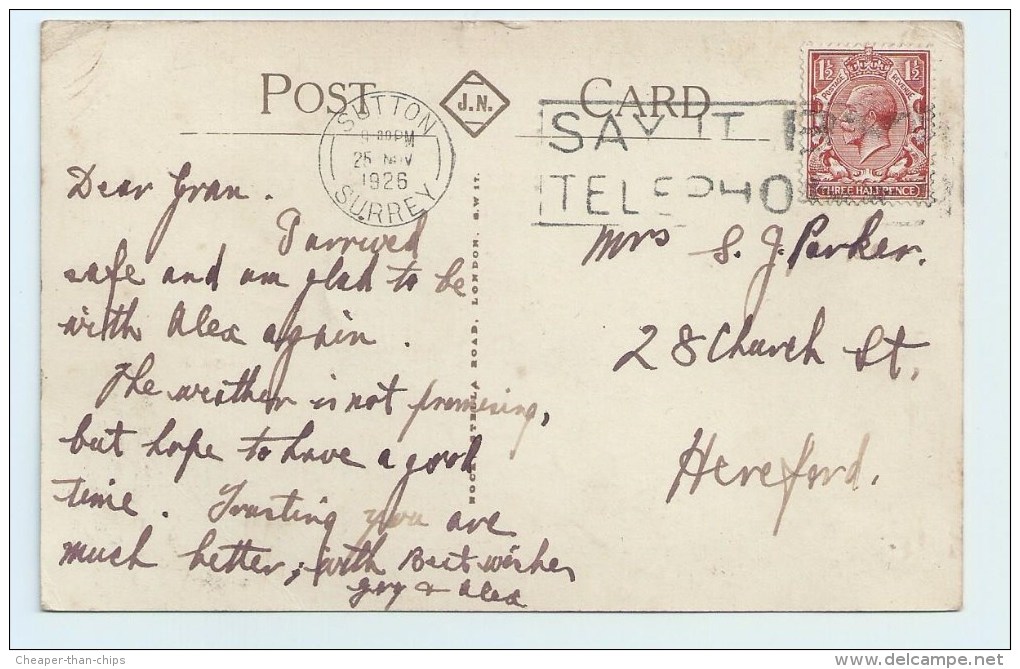 POST J.N. CARD
SUTTON
PM
25 NOV
1926
SURREY
SAY IT
TELEPHO
1½ 1½
POSTAGE REVENUE
THREE HALF PENCE
Dear Gran.
I arrived
safe and am glad to be
with Alex again.
The weather is not promising,
but hope to have a good
time. Trusting you are
much better, with Best wishes
Joy & Alex
ROAD, LONDON. S.W.17.
Mrs S. J. Parker.
28 Church St.
Hereford.
Cheaper-than-chips
www.delcampe.net